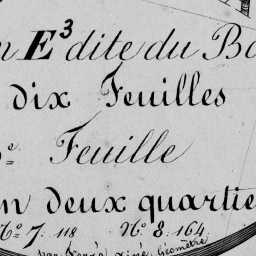 n E³ dite du Bo
dix Feuilles
e Feuille
n deux quartie
N° 7. 118 N° 8. 164
par ainé, Géomètre